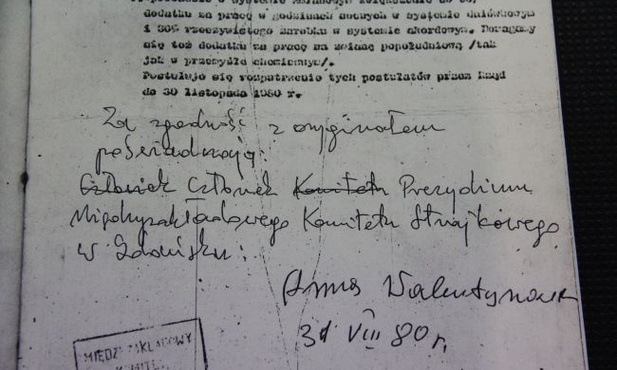 dodatku za pracę w godzinach nocnych w systemie dniówkowym
i 30% rzeczywistego zarobku w systemie akordowym. Domagamy
się też dodatku za pracę na zmianę popołudniową /tak
jak w przemyśle chemicznym/.
Postuluje się rozpatrzenie tych postulatów przez Rząd
do 30 listopada 1980 r.
Za zgodność z oryginałem
poświadczają:
Członek Członek Komitetu Prezydium
Międzyzakładowego Komitetu Strajkowego
w Gdańsku:
Anna Walentynowicz
31 VIII 80 r.
MIĘDZYZAKŁADOWY